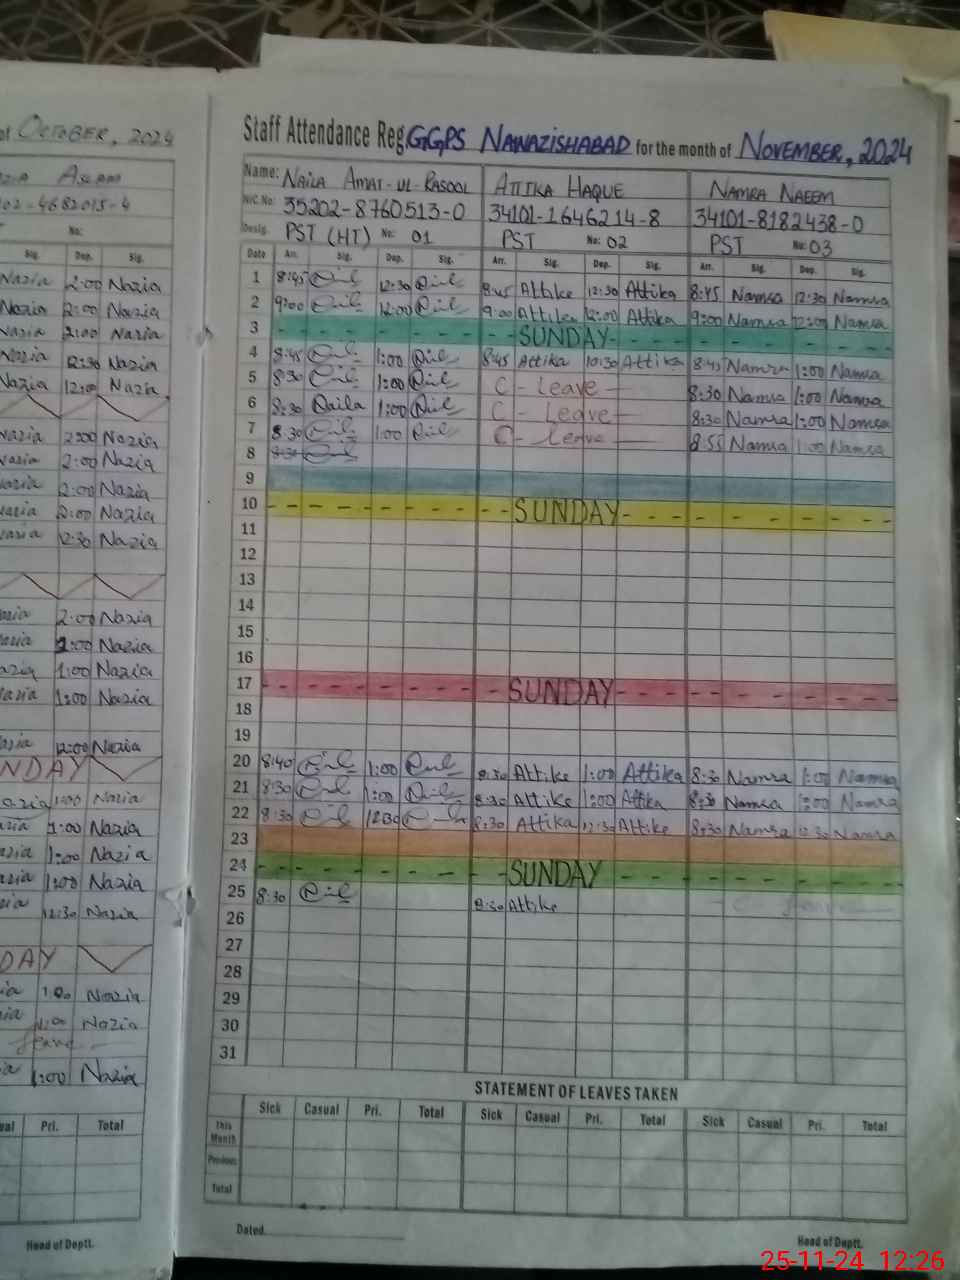 of OCTOBER, 2024
ASLAM
02-4682015-4
No:
Sig. Dep. Sig.
Nazia 2:00 Nazia
Nazia 2:00 Nazia
Nazia 2:00 Nazia
Nazia 12:30 Nazia
Nazia 12:00 Nazia
Nazia 2:00 Nazia
Nazia 2:00 Nazia
2:00 Nazia
2:00 Nazia
12:30 Nazia
2:00 Nazia
2:00 Nazia
1:00 Nazia
1:00 Nazia
12:00 Nazia
NDAY
1:00 Nazia
1:00 Nazia
1:00 Nazia
1:00 Nazia
12:30 Nazia
DAY
1:00 Nazia
1:00 Nazia
Leave
1:00 Nazia
ual Pri. Total
Head of Deptt.
Staff Attendance Reg. GGPS NAWAZISHABAD for the month of NOVEMBER, 2024
Name: NAILA AMAT-UL-RASOOL ATTIKA HAQUE NAMRA NAEEM
N.I.C. No: 35202-8760513-0 34101-1646214-8 34101-8182438-0
Desig. PST (HT) No: 01 PST No: 02 PST No: 03
Date Arr. Sig. Dep. Sig. Arr. Sig. Dep. Sig. Arr. Sig. Dep. Sig.
1 8:45 12:30 8:45 Attika 12:30 Attika 8:45 Namra 12:30 Namra
2 9:00 12:00 9:00 Attika 12:00 Attika 9:00 Namra 12:00 Namra
3 SUNDAY
4 8:45 1:00 8:45 Attika 10:30 Attika 8:45 Namra 1:00 Namra
5 8:30 1:00 C-Leave 8:30 Namra 1:00 Namra
6 8:30 Naila 1:00 C-Leave 8:30 Namra 1:00 Namra
7 8:30 1:00 C-Leave 8:55 Namra 1:00 Namra
8 8:30
9
10 SUNDAY
11
12
13
14
15
16
17 SUNDAY
18
19
20 8:40 1:00 8:30 Attika 1:00 Attika 8:30 Namra 1:00 Namra
21 8:30 1:00 8:30 Attika 1:00 Attika 8:30 Namra 1:00 Namra
22 8:30 12:30 8:30 Attika 12:30 Attika 8:30 Namra 12:30 Namra
23
24 SUNDAY
25 8:30 8:30 Attika C-Leave
26
27
28
29
30
31
STATEMENT OF LEAVES TAKEN
Sick Casual Pri. Total Sick Casual Pri. Total Sick Casual Pri. Total
This Month
Previous
Total
Dated
Head of Deptt.
25-11-24 12:26